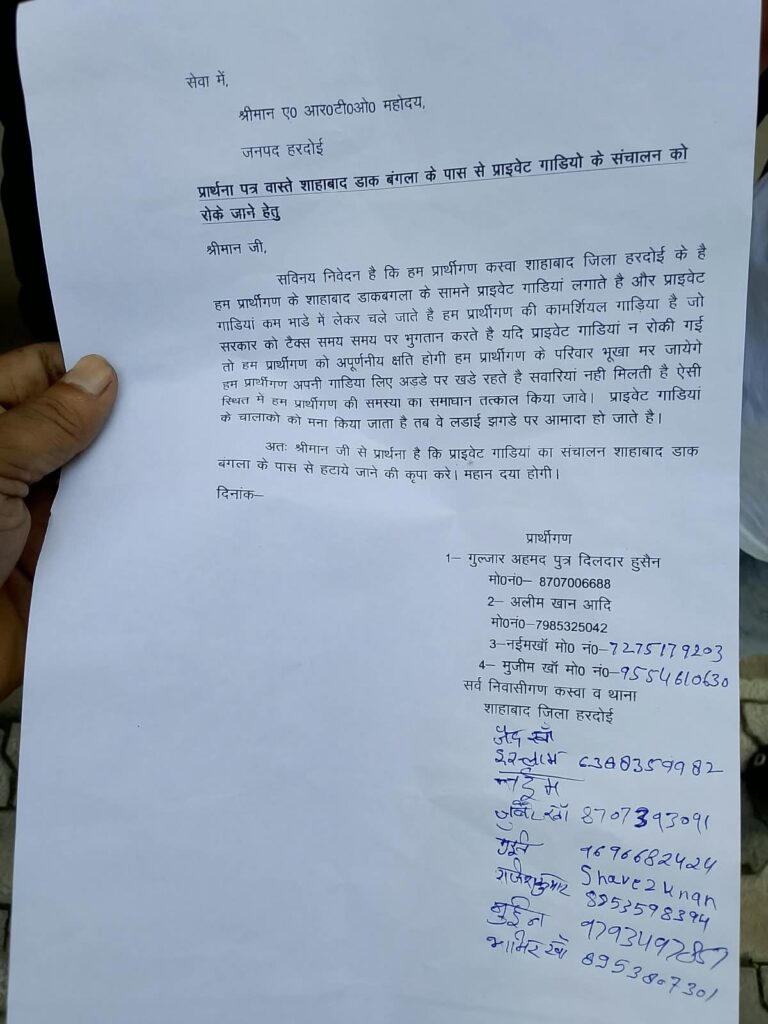 सेवा में,
श्रीमान ए0 आर0टी0ओ0 महोदय,
जनपद हरदोई
प्रार्थना पत्र वास्ते शाहाबाद डाक बंगला के पास से प्राइवेट गाडियो के संचालन को
रोके जाने हेतु
श्रीमान जी,
सविनय निवेदन है कि हम प्रार्थीगण कस्वा शाहाबाद जिला हरदोई के है
हम प्रार्थीगण के शाहाबाद डाकबगला के सामने प्राइवेट गाडियां लगाते है और प्राइवेट
गाडियां कम भाडे में लेकर चले जाते है हम प्रार्थीगण की कामर्शियल गाड़िया है जो
सरकार को टैक्स समय समय पर भुगतान करते है यदि प्राइवेट गाडियां न रोकी गई
तो हम प्रार्थीगण को अपूर्णनीय क्षति होगी हम प्रार्थीगण के परिवार भूखा मर जायेगे
हम प्रार्थीगण अपनी गाडिया लिए अड्डे पर खडे रहते है सवारियां नही मिलती है ऐसी
स्थित मे हम प्रार्थीगण की समस्या का समाघान तत्काल किया जावे। प्राइवेट गाडियां
के चालाको को मना किया जाता है तब वे लडाई झगडे पर आमादा हो जाते है।
अतः श्रीमान जी से प्रार्थना है कि प्राइवेट गाडियां का संचालन शाहाबाद डाक
बंगला के पास से हटाये जाने की कृपा करे। महान दया होगी।
दिनांक–
प्रार्थीगण
1– गुल्जार अहमद पुत्र दिलदार हुसैन
मो0नं0– 8707006688
2– अलीम खान आदि
मो0नं0–7985325042
3–नईमखॉ मो0 नं0–7275179203
4– मुजीम खॉ मो0 नं0–9554610630
सर्व निवासीगण कस्वा व थाना
शाहाबाद जिला हरदोई
खॉ
इस्लाम 6388359982
नईम
खॉ 8707393091
9696682424
राजेशकुमार Shavez Khan
8953598394
मुईन 9793497857
आमिर खॉ 8953807301